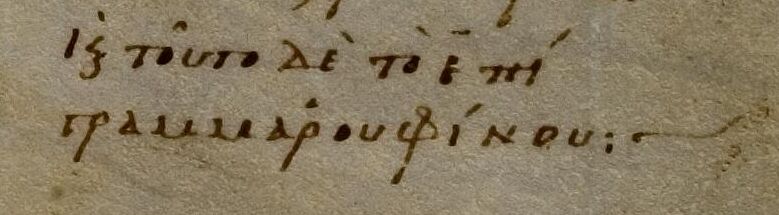 ιξ τοῦτο δὲ τὸ ἐπί
γραμμα ῥουφίνου: